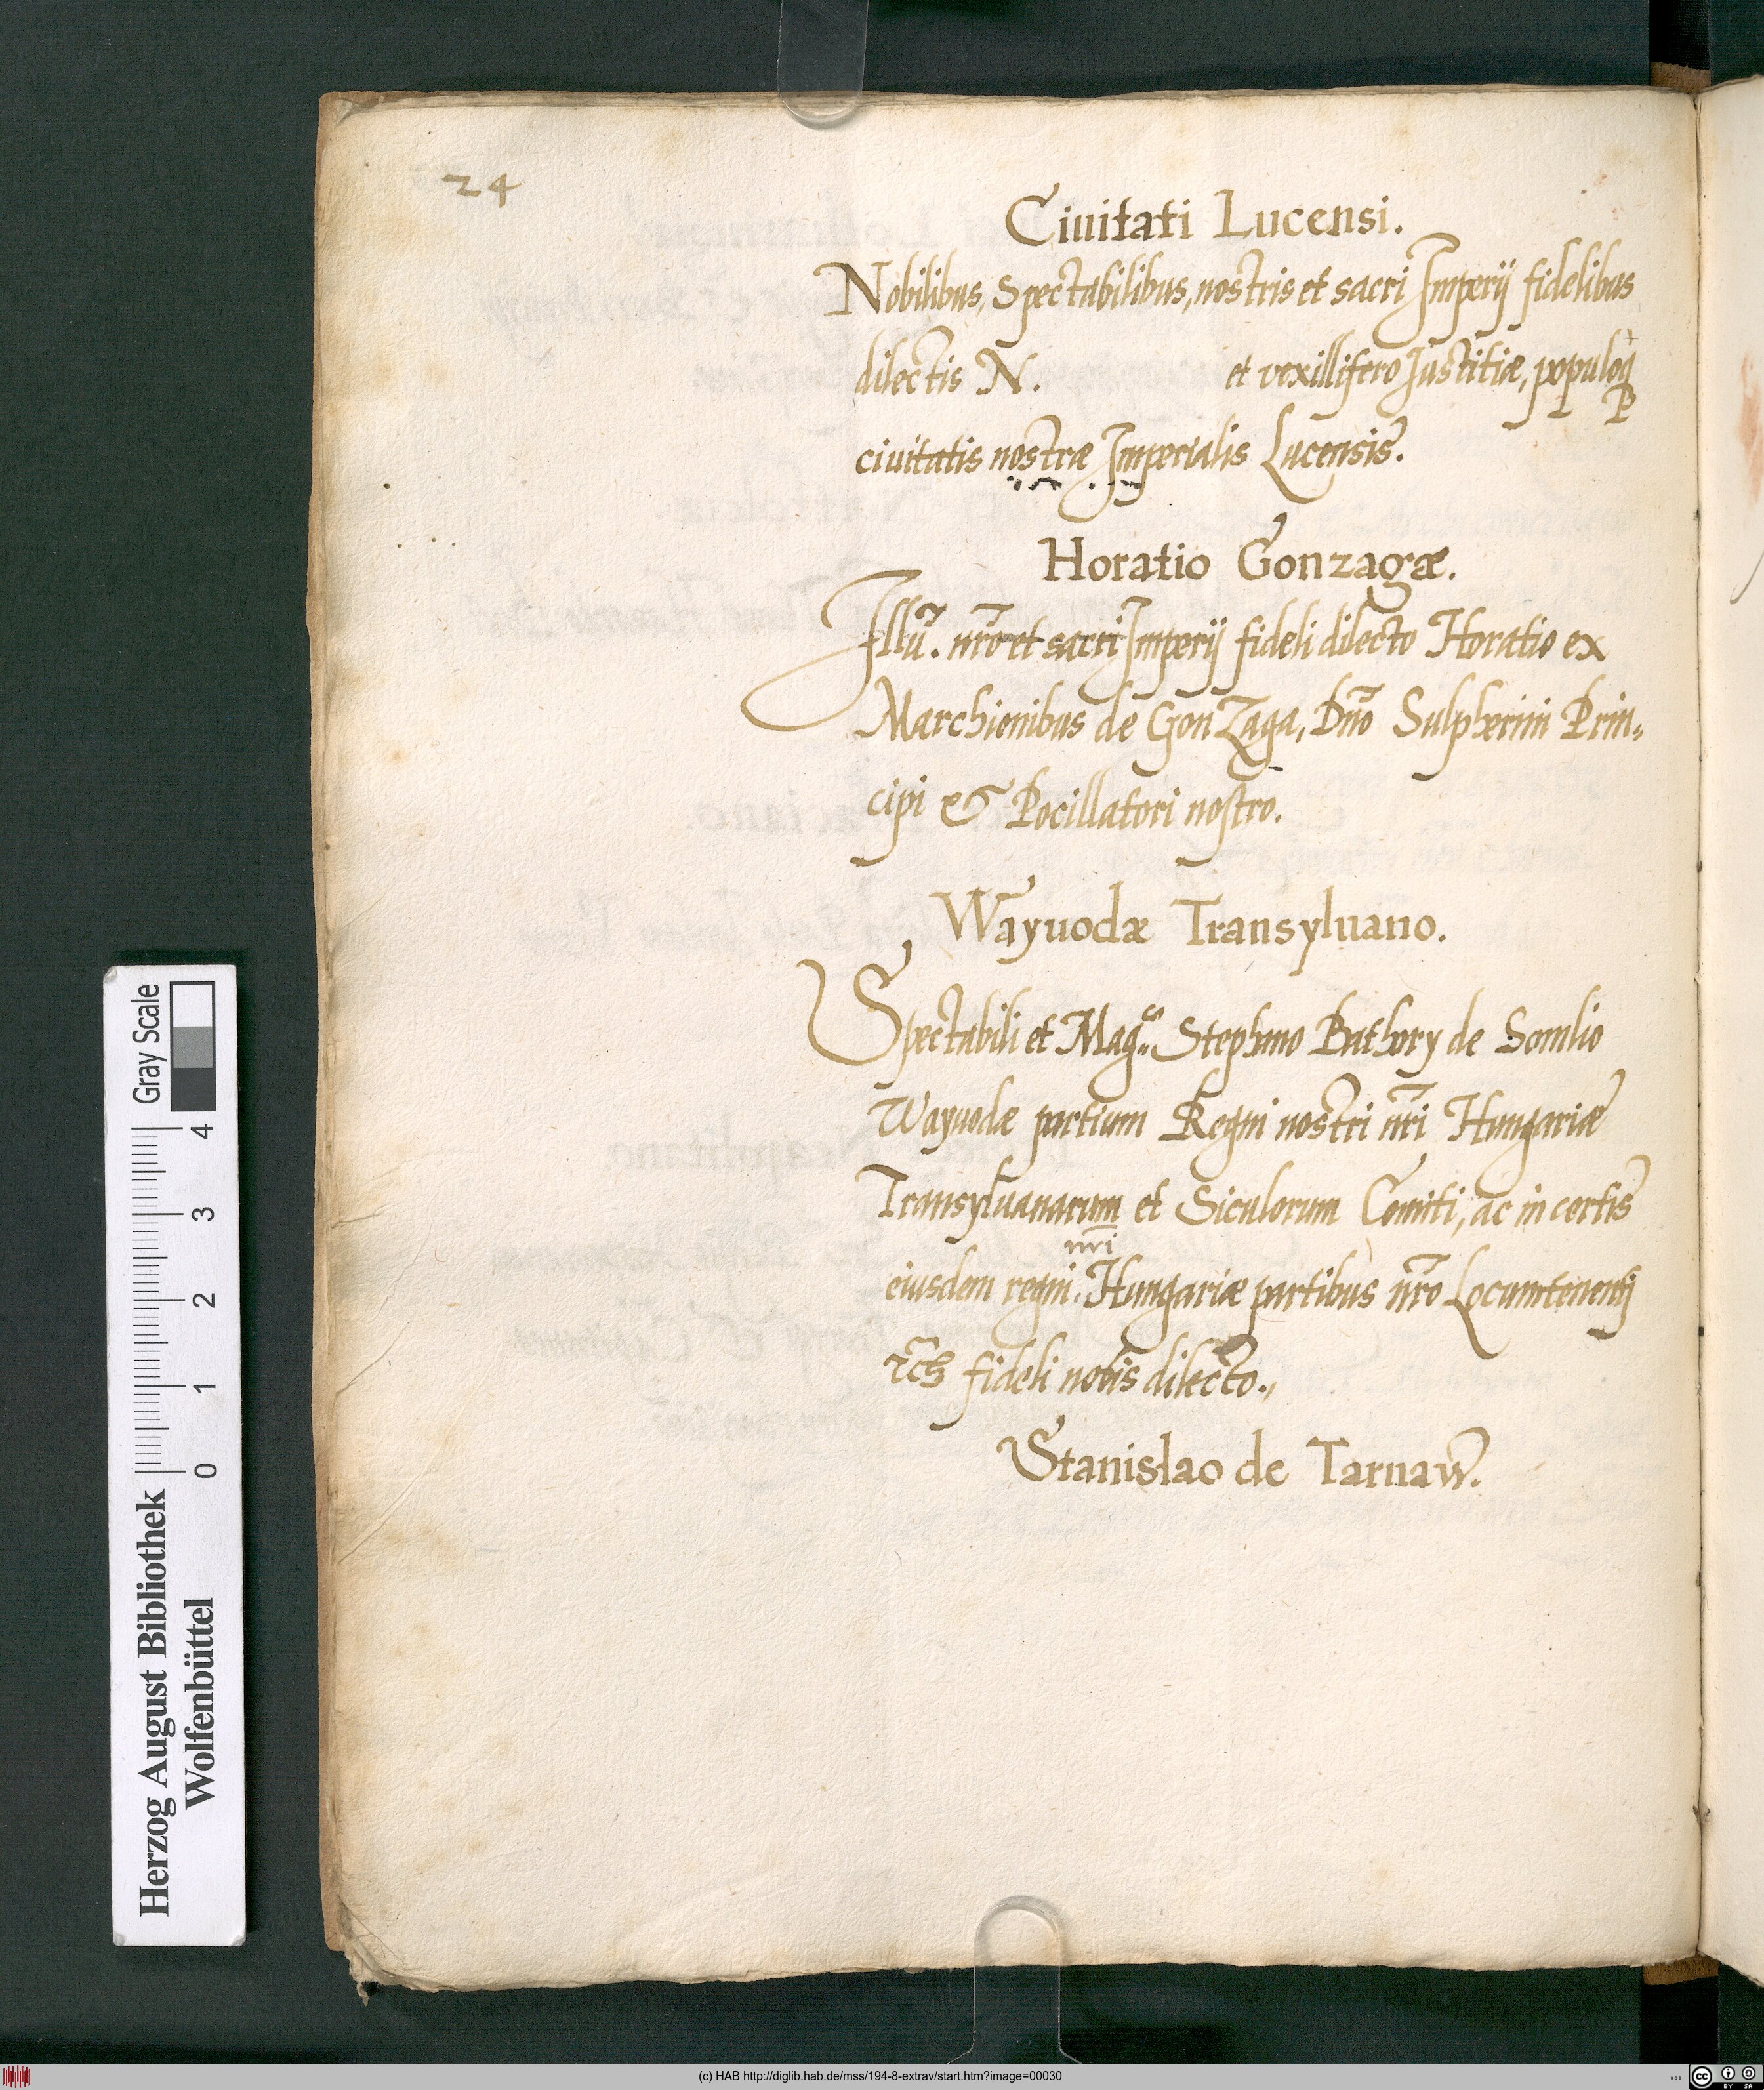 24
Ciuitati Lucensi.
Nobilibus, Spectabilibus, nostris et sacri Imperij fidelibus
dilectis N. et vexillifero Iustitiæ, populoq̀
P
ciuitatis nostræ Imperialis Lucensis.
Horatio Gonzagæ.
Illu᷃. nr̃o et sacri Imperij fideli dilecto Horatio ex
Marchionibus de Gonzaga, Dño Sulpherini Prin„
cipi & Pocillatori nostro.
Wayuodæ Transyluano.
Spectabili et Mag.co Stephano Bathory de Somlio
Wayuodæ partium Regni nostri nr̃i Hungariæ
Transyluanarum et Siculorum Comiti, ac in certis
nr̃i
eiusdem regni. Hungariæ partibus nr̃o Locumtenenti
fideli nobis dilecto.,
Stanislao de Tarnaw.
Herzog August Bibliothek
Wolfenbüttel
0 1 2 3 4
Gray Scale
(c) HAB http://diglib.hab.de/mss/194-8-extrav/start.htm?image=00030
cc BY SA